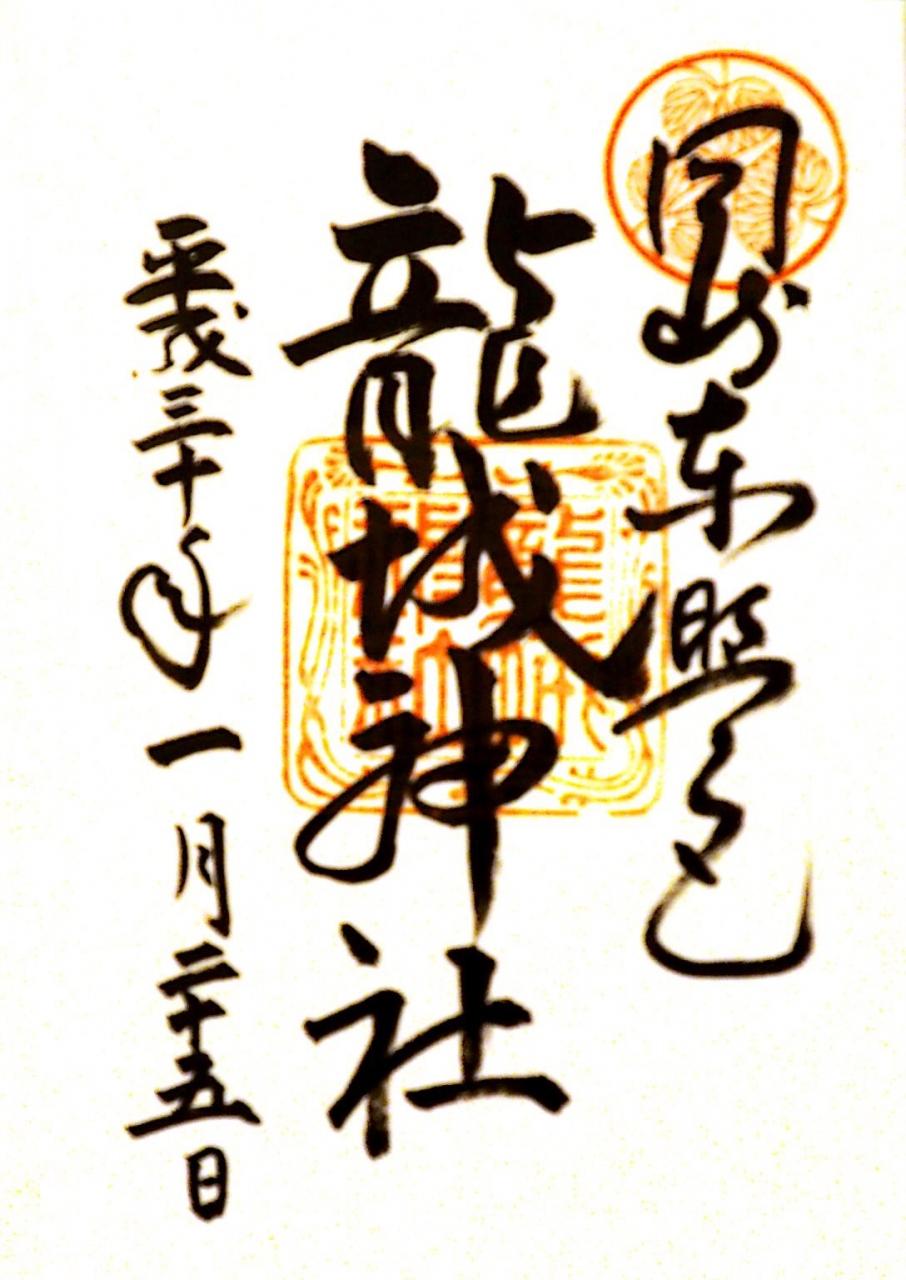 岡崎東照宮
龍城神社
平成三十年一月二十五日